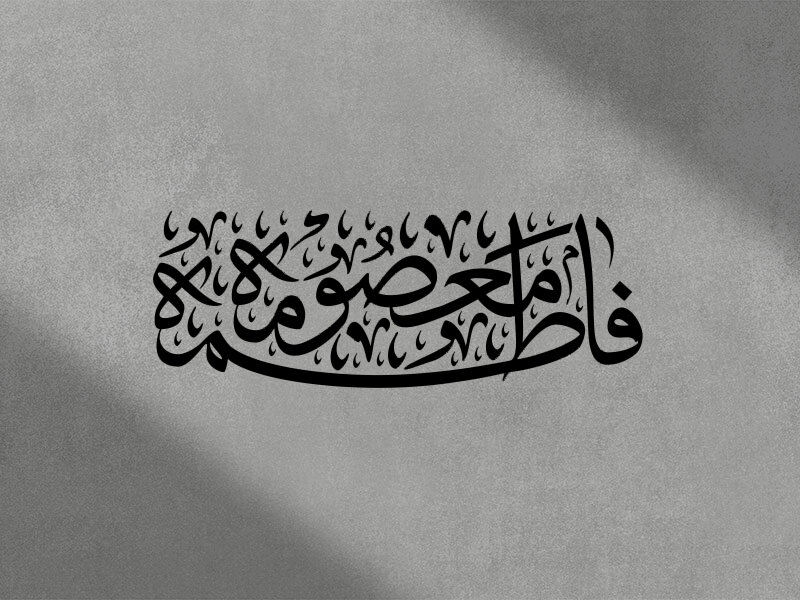 فاطمه معصومه